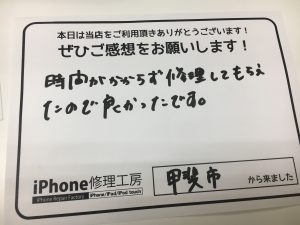 本日は当店をご利用頂きありがとうございます！
ぜひご感想をお願いします！
時間がかからず修理してもらえ
たので良かったです。
iPhone修理工房
iPhone Repair Factory
iPhone/iPad/iPod touch
甲斐市
から来ました